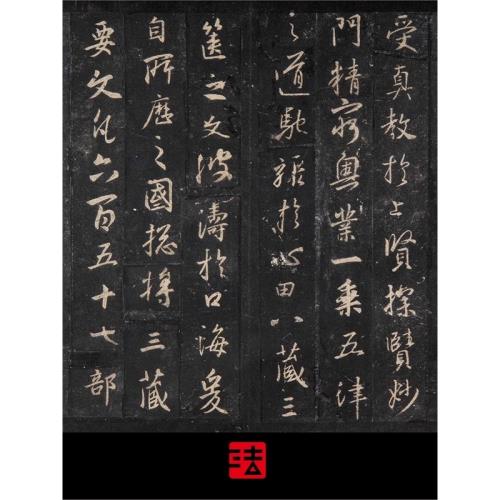 受真教於上賢探賾妙
門精窮奧業一乘五律
之道馳驟於心田八藏三
篋之文波濤於口海爰
自所歷之國總將三藏
要文凡六百五十七部